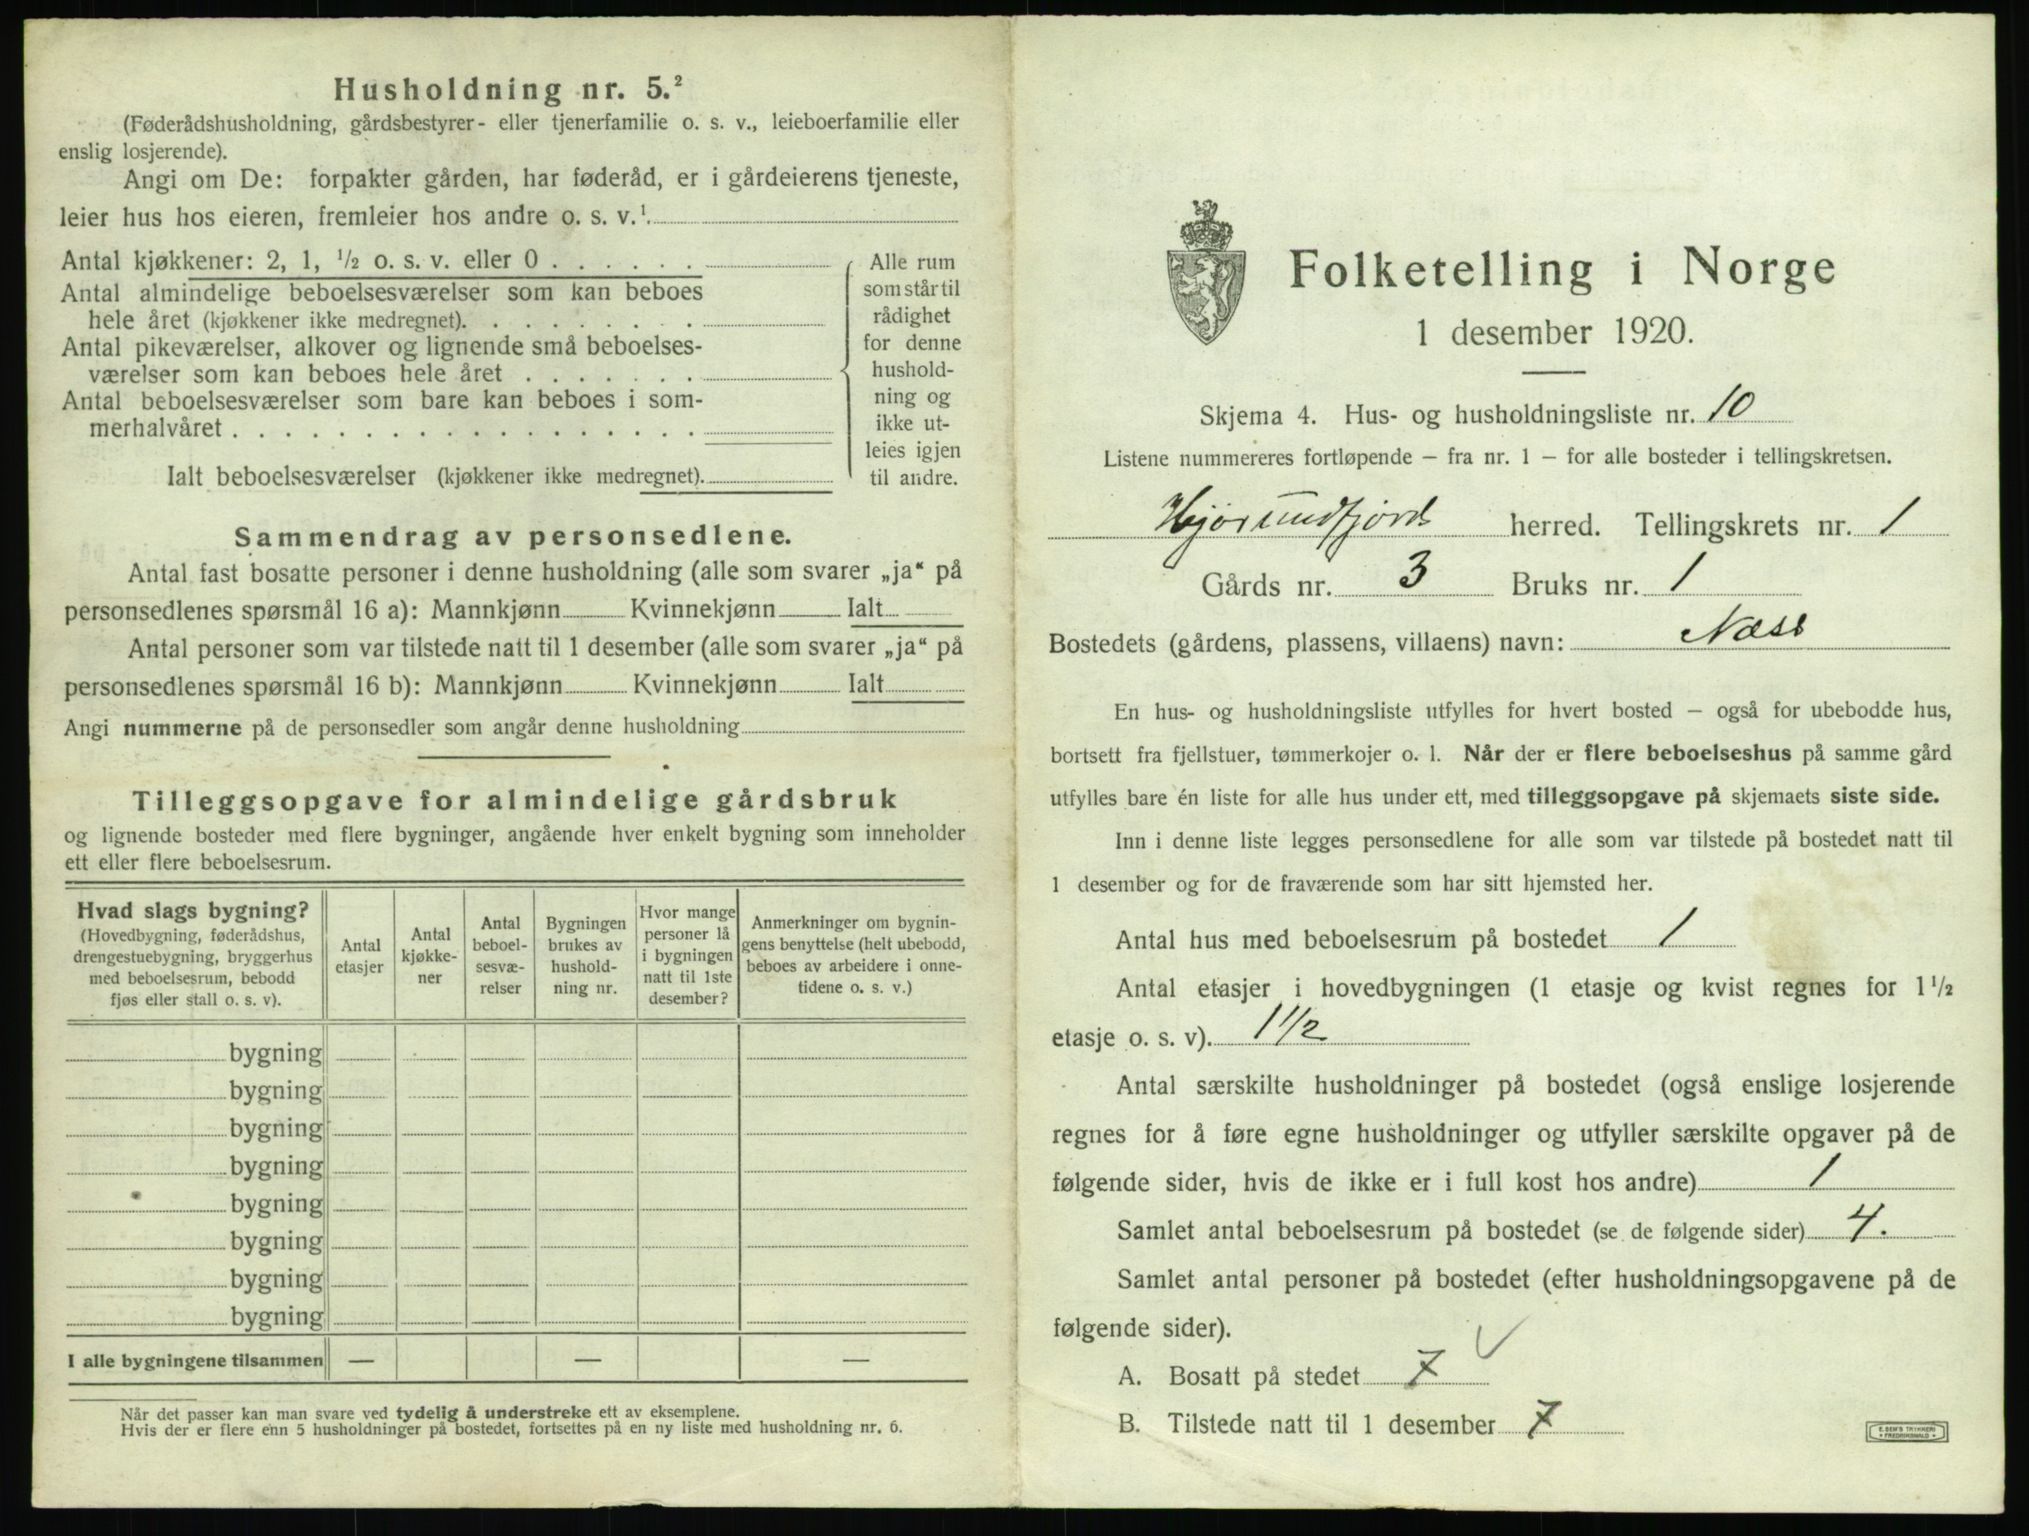 Husholdning nr. 5.²
(Føderådshusholdning, gårdsbestyrer- eller tjenerfamilie o. s. v., leieboerfamilie eller
enslig losjerende).
Angi om De: forpakter gården, har føderåd, er i gårdeierens tjeneste,
leier hus hos eieren, fremleier hos andre o. s. v.¹
Antal kjøkkener: 2, 1, ½ o. s. v. eller 0
Antal almindelige beboelsesværelser som kan beboes
hele året (kjøkkener ikke medregnet).
Antal pikeværelser, alkover og lignende små beboelses-
værelser som kan beboes hele året
Antal beboelsesværelser som bare kan beboes i som-
merhalvåret
Ialt beboelsesværelser (kjøkkener ikke medregnet).
Alle rum
som står til
rådighet
for denne
hushold-
ning og
ikke ut-
leies igjen
til andre.
Sammendrag av personsedlene.
Antal fast bosatte personer i denne husholdning (alle som svarer „ja“ på
personsedlenes spørsmål 16 a): Mannkjønn Kvinnekjønn Ialt
Antal personer som var tilstede natt til 1 desember (alle som svarer „ja“ på
personsedlenes spørsmål 16 b): Mannkjønn Kvinnekjønn Ialt
Angi nummerne på de personsedler som angår denne husholdning
Tilleggsopgave for almindelige gårdsbruk
og lignende bosteder med flere bygninger, angående hver enkelt bygning som inneholder
ett eller flere beboelsesrum.
Hvad slags bygning?
(Hovedbygning, føderådshus,
drengestuebygning, bryggerhus
med beboelsesrum, bebodd
fjøs eller stall o. s. v).
Antal
etasjer
Antal
kjøkke-
ner
Antal
beboel-
sesvæ-
relser
Bygningen
brukes av
hushold-
ning nr.
Hvor mange
personer lå
i bygningen
natt til 1ste
desember?
Anmerkninger om bygnin-
gens benyttelse (helt ubebodd,
beboes av arbeidere i onne-
tidene o. s. v.)
bygning
bygning
bygning
bygning
bygning
bygning
bygning
bygning
I alle bygningene tilsammen — — —
Når det passer kan man svare ved tydelig å understreke ett av eksemplene.
Hvis der er flere enn 5 husholdninger på bostedet, fortsettes på en ny liste med husholdning nr. 6.
Folketelling i Norge
1 desember 1920.
Skjema 4. Hus- og husholdningsliste nr. 10
Listene nummereres fortløpende – fra nr. 1 – for alle bosteder i tellingskretsen.
Hjørundfjord herred. Tellingskrets nr. 1
Gårds nr. 3 Bruks nr. 1
Bostedets (gårdens, plassens, villaens) navn: Næss
En hus- og husholdningsliste utfylles for hvert bosted – også for ubebodde hus,
bortsett fra fjellstuer, tømmerkojer o. l. Når der er flere beboelseshus på samme gård
utfylles bare én liste for alle hus under ett, med tilleggsopgave på skjemaets siste side.
Inn i denne liste legges personsedlene for alle som var tilstede på bostedet natt til
1 desember og for de fraværende som har sitt hjemsted her.
Antal hus med beboelsesrum på bostedet 1
Antal etasjer i hovedbygningen (1 etasje og kvist regnes for 1 ½
etasje o. s. v). 1 1/2
Antal særskilte husholdninger på bostedet (også enslige losjerende
regnes for å føre egne husholdninger og utfyller særskilte opgaver på de
følgende sider, hvis de ikke er i full kost hos andre) 1
Samlet antal beboelsesrum på bostedet (se de følgende sider) 4.
Samlet antal personer på bostedet (efter husholdningsopgavene på de
følgende sider).
A. Bosatt på stedet 7
B. Tilstede natt til 1 desember 7
E. SEM'S TRYKKERI
FREDRIKSHALD